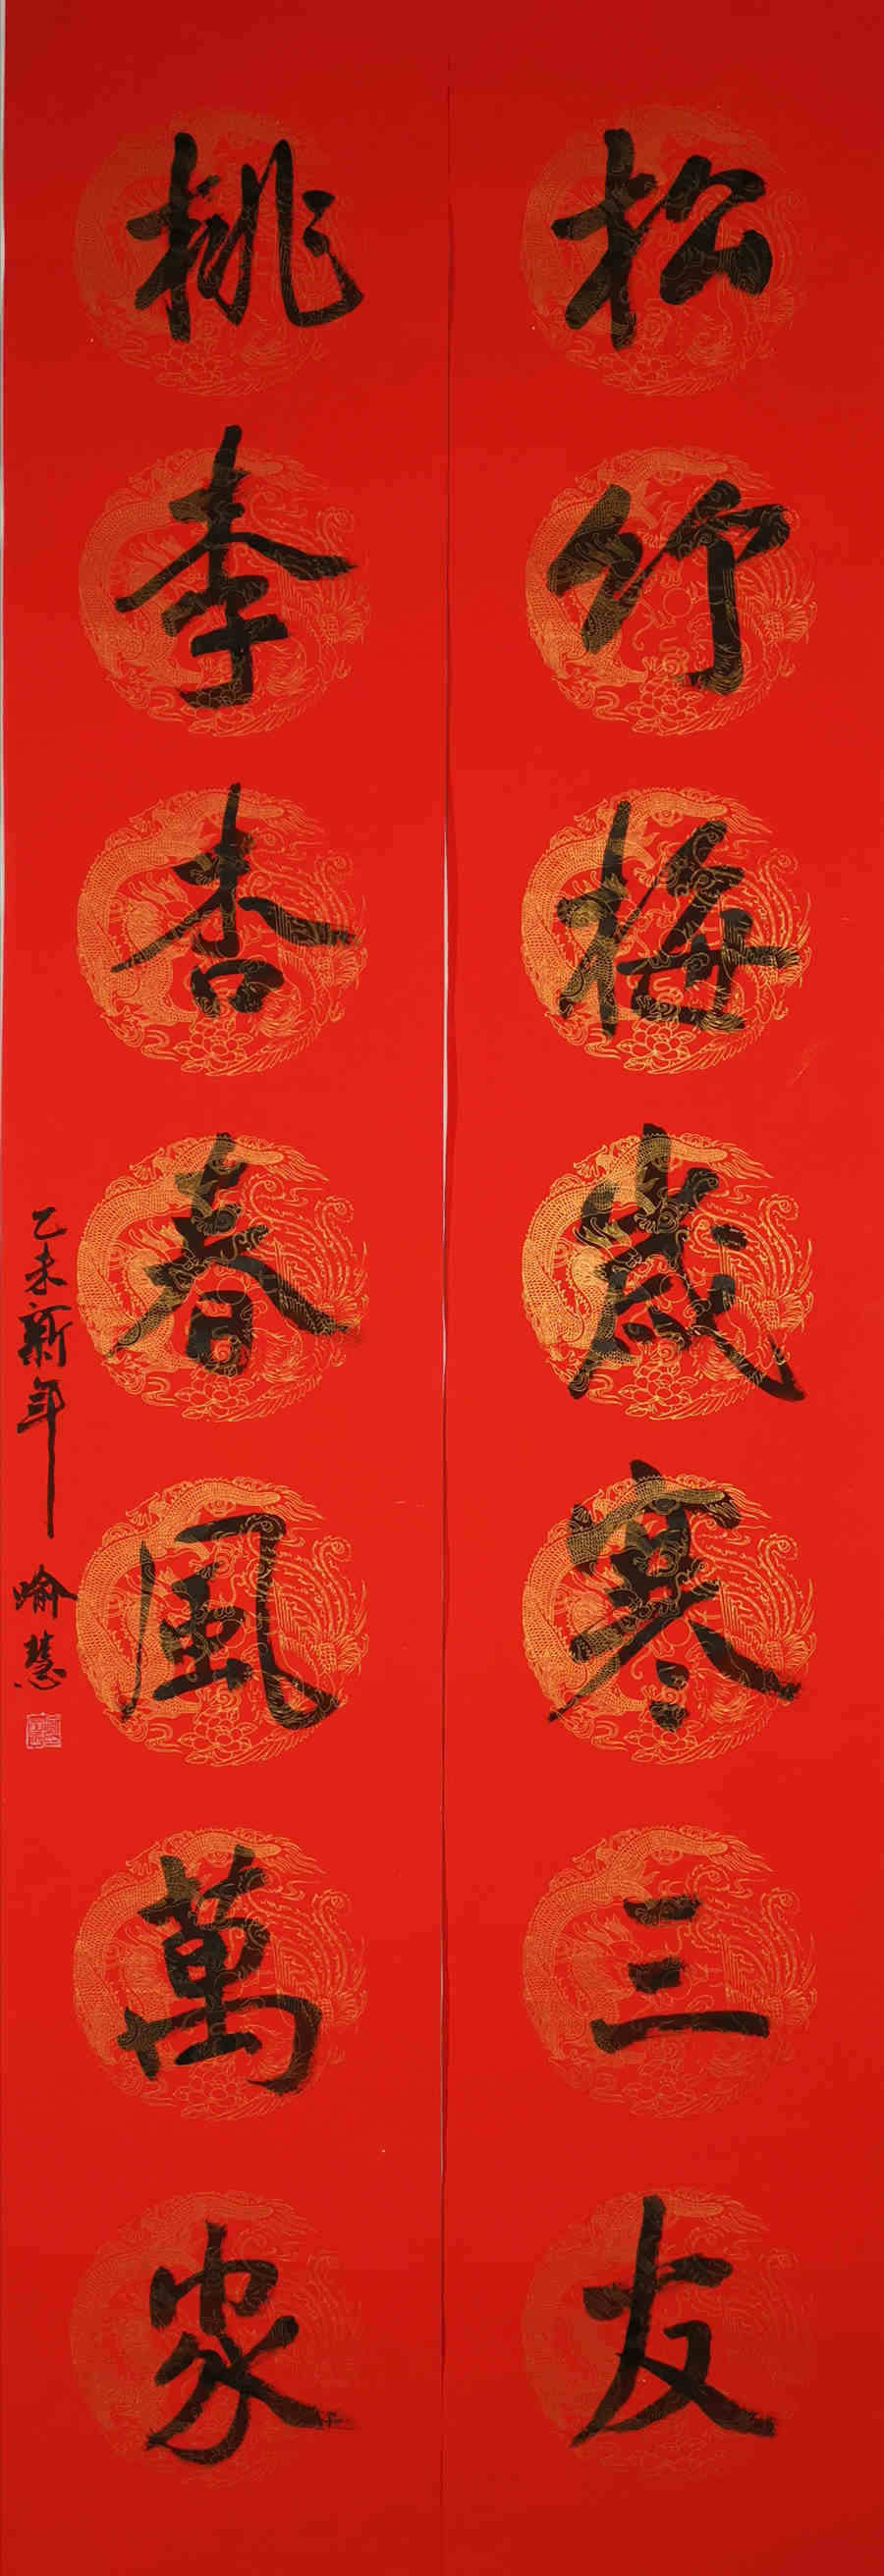 松竹梅歲寒三友
桃李杏春風萬家
乙未新年 喻慧